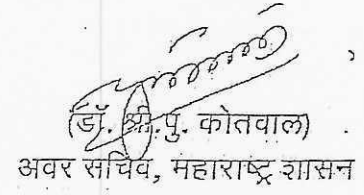 (डॉ. श्री.पु. कोतवाल)
अवर सचिव, महाराष्ट्र शासन